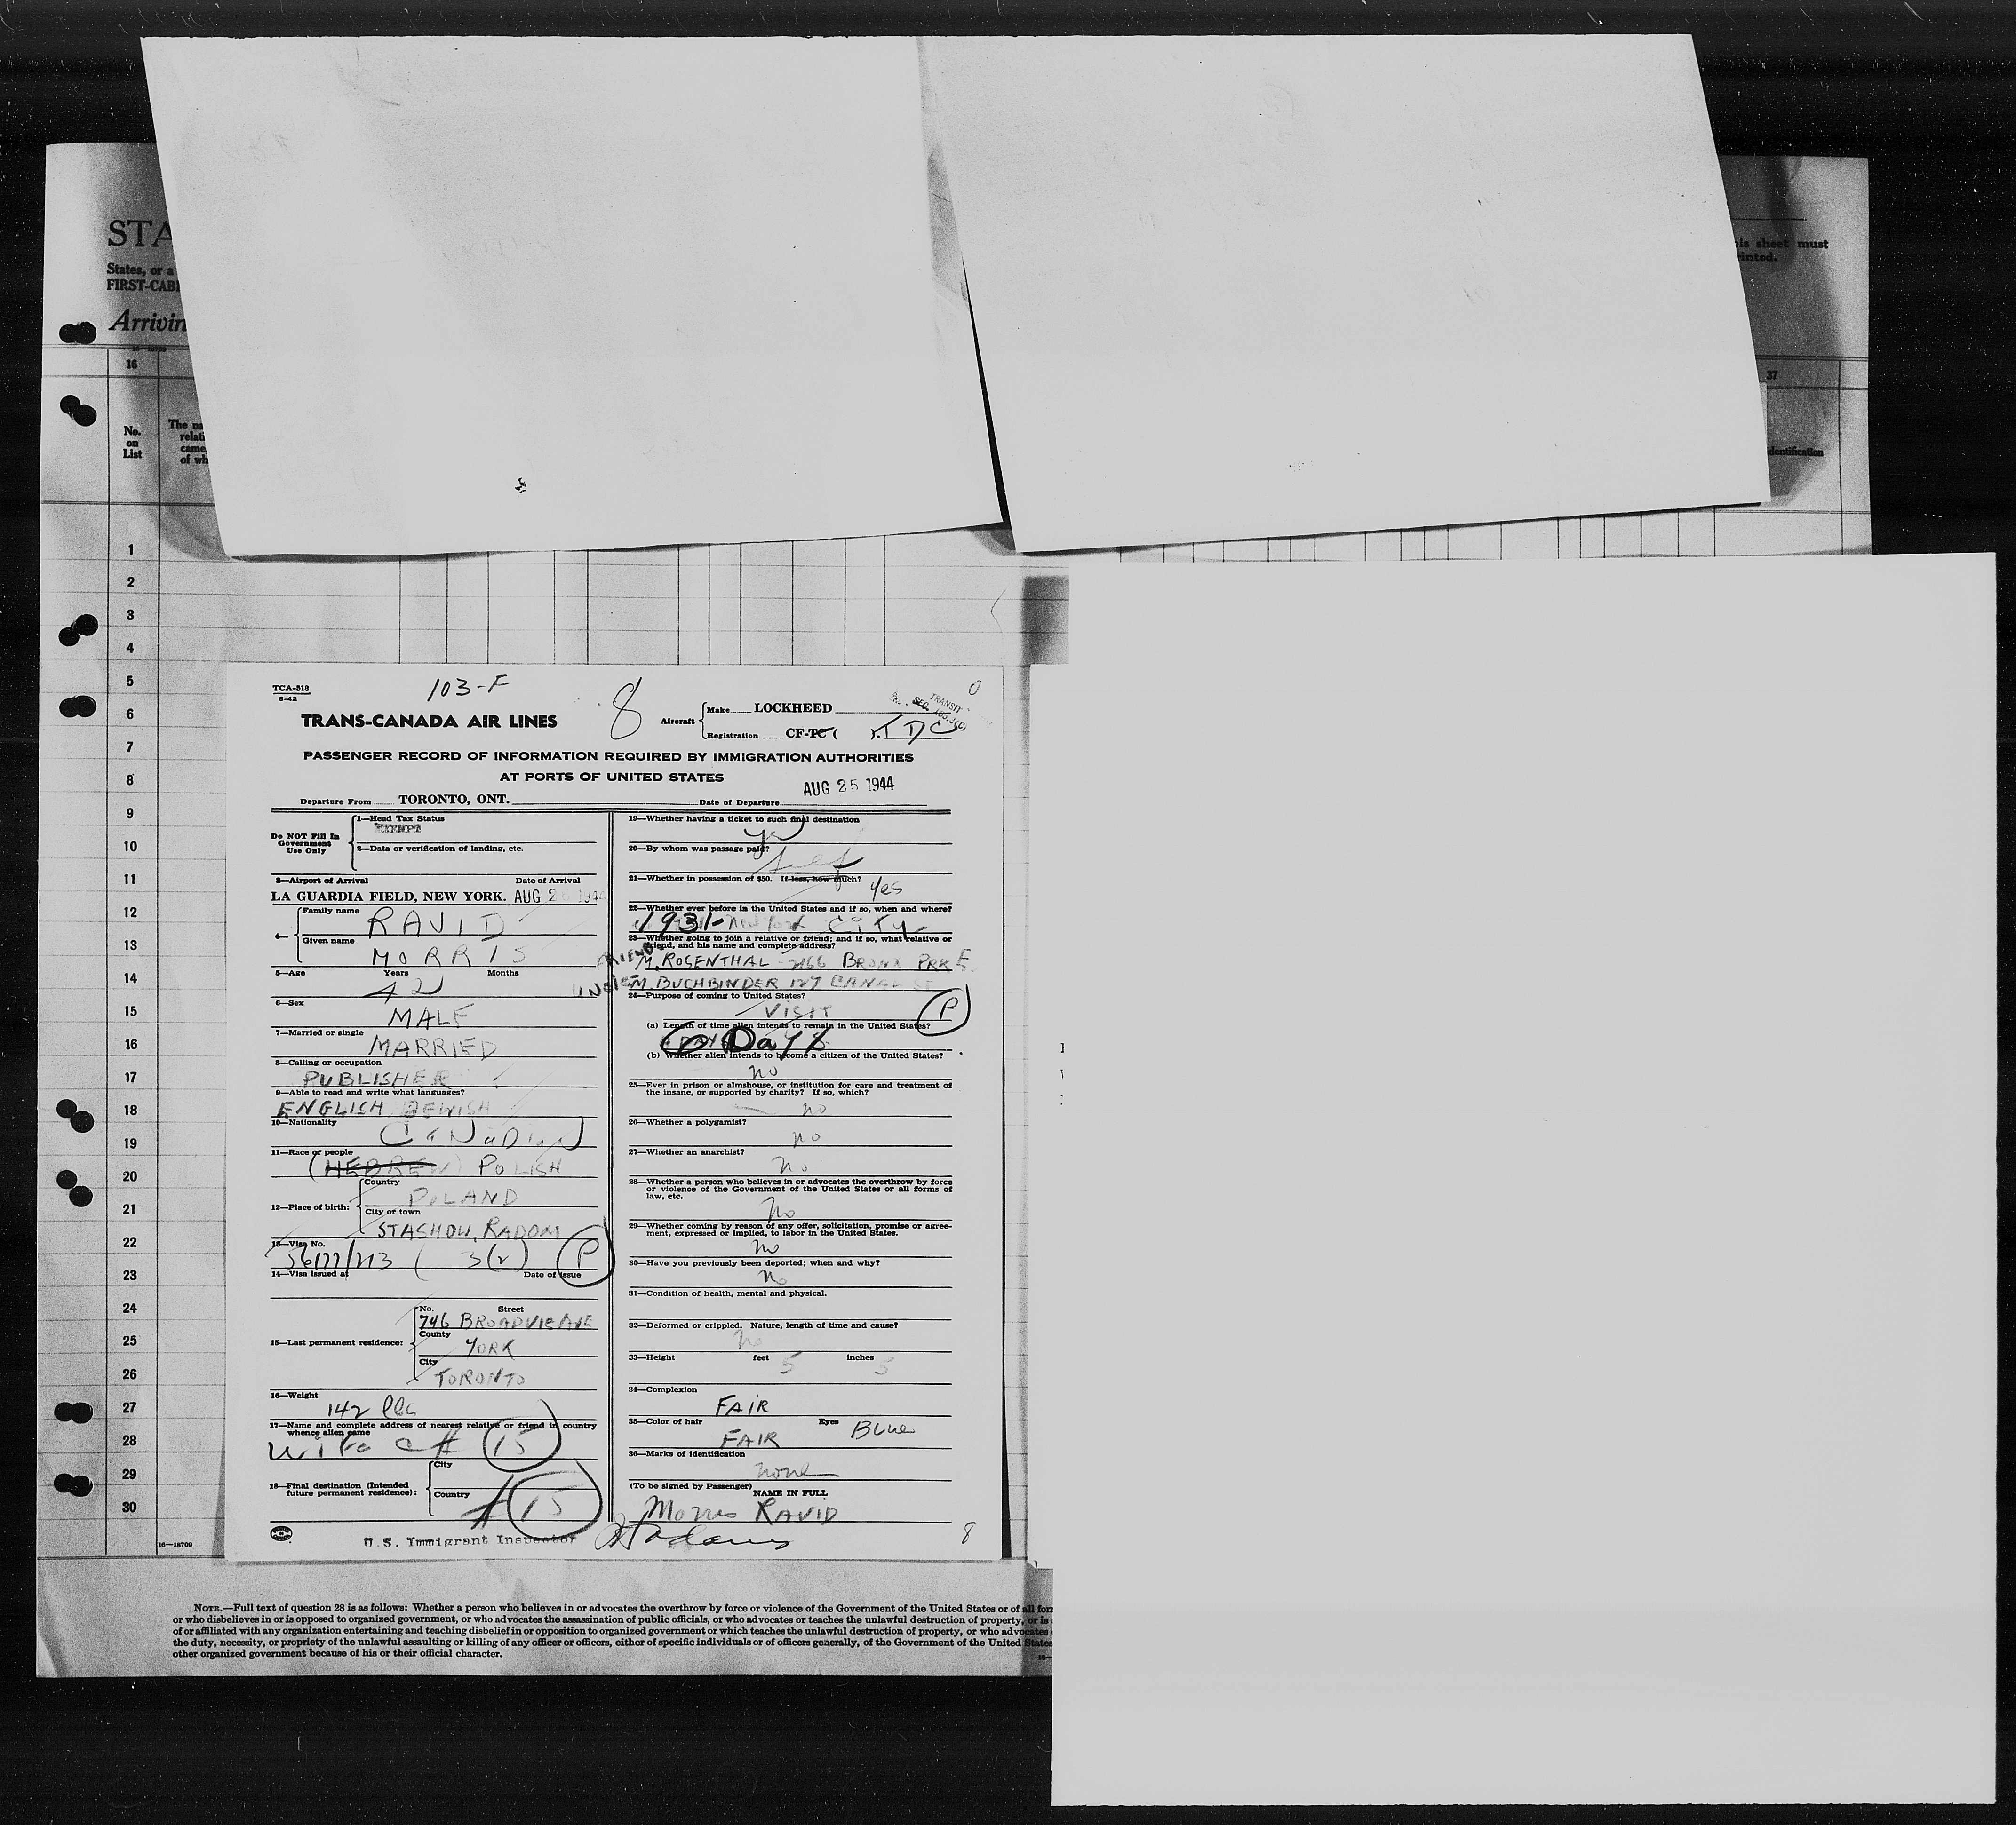 STA
States, or a
FIRST-CAB
Arrivin
his sheet must
rinted.
16
37
No.
on
List
The na
relati
came
of wh
dentification
1
2
3
4
5
6
7
8
9
10
11
12
13
14
15
16
17
18
19
20
21
22
23
24
25
26
27
28
29
30
16—18709
TCA-518
6-42
103-F
8
0
TRANS-CANADA AIR LINES
Aircraft
Make LOCKHEED
Registration CF-TC ( ). TDC
TRANSIT
SEC.
PASSENGER RECORD OF INFORMATION REQUIRED BY IMMIGRATION AUTHORITIES
AT PORTS OF UNITED STATES
Departure From TORONTO, ONT. Date of Departure AUG 25 1944
Do NOT Fill In
Government
Use Only
1—Head Tax Status
EXEMPT
2—Data or verification of landing, etc.
3—Airport of Arrival Date of Arrival
LA GUARDIA FIELD, NEW YORK. AUG 2 194
4—
Family name RAVID
Given name MORRIS
5—Age Years Months
42
6—Sex
MALE
7—Married or single
MARRIED
8—Calling or occupation
PUBLISHER
9—Able to read and write what languages?
ENGLISH JEWISH
10—Nationality
CANADIAN
11—Race or people
(HEBREW) POLISH
12—Place of birth:
Country
POLAND
City or town
STASHOW, RADOM
13—Visa No.
3(2) P
14—Visa issued at Date of issue
15—Last permanent residence:
No. Street
746 BROADVIE AVE
County
YORK
City
TORONTO
16—Weight
142 lbs
17—Name and complete address of nearest relative or friend in country
whence alien came
Wife at # 15
18—Final destination (Intended
future permanent residence):
City
Country
# 15
U.S. Immigrant Inspector
19—Whether having a ticket to such final destination
yes
20—By whom was passage paid?
self
21—Whether in possession of $50. If less, how much?
Yes
22—Whether ever before in the United States and if so, when and where?
1931- New York City
23—Whether going to join a relative or friend; and if so, what relative or
friend, and his name and complete address?
FRIEND M. ROSENTHAL 2166 BRONX PRK E.
UNCLE M. BUCHBINDER 127 CANAL ST
24—Purpose of coming to United States?
VISIT P
(a) Length of time alien intends to remain in the United States?
6 Days
(b) Whether alien intends to become a citizen of the United States?
no
25—Ever in prison or almshouse, or institution for care and treatment of
the insane, or supported by charity? If so, which?
no
26—Whether a polygamist?
no
27—Whether an anarchist?
no
28—Whether a person who believes in or advocates the overthrow by force
or violence of the Government of the United States or all forms of
law, etc.
No
29—Whether coming by reason of any offer, solicitation, promise or agree-
ment, expressed or implied, to labor in the United States.
no
30—Have you previously been deported; when and why?
no
31—Condition of health, mental and physical.
32—Deformed or crippled. Nature, length of time and cause?
no
33—Height feet 5 inches 5
34—Complexion
FAIR
35—Color of hair Eyes
FAIR Blue
36—Marks of identification
none
(To be signed by Passenger)
NAME IN FULL
Morris RAVID
8
NOTE.—Full text of question 28 is as follows: Whether a person who believes in or advocates the overthrow by force or violence of the Government of the United States or of all for
or who disbelieves in or is opposed to organized government, or who advocates the assassination of public officials, or who advocates or teaches the unlawful destruction of property, or is
of or affiliated with any organization entertaining and teaching disbelief in or opposition to organized government or which teaches the unlawful destruction of property, or who advocates
the duty, necessity, or propriety of the unlawful assaulting or killing of any officer or officers, either of specific individuals or of officers generally, of the Government of the United States
other organized government because of his or their official character.
16—